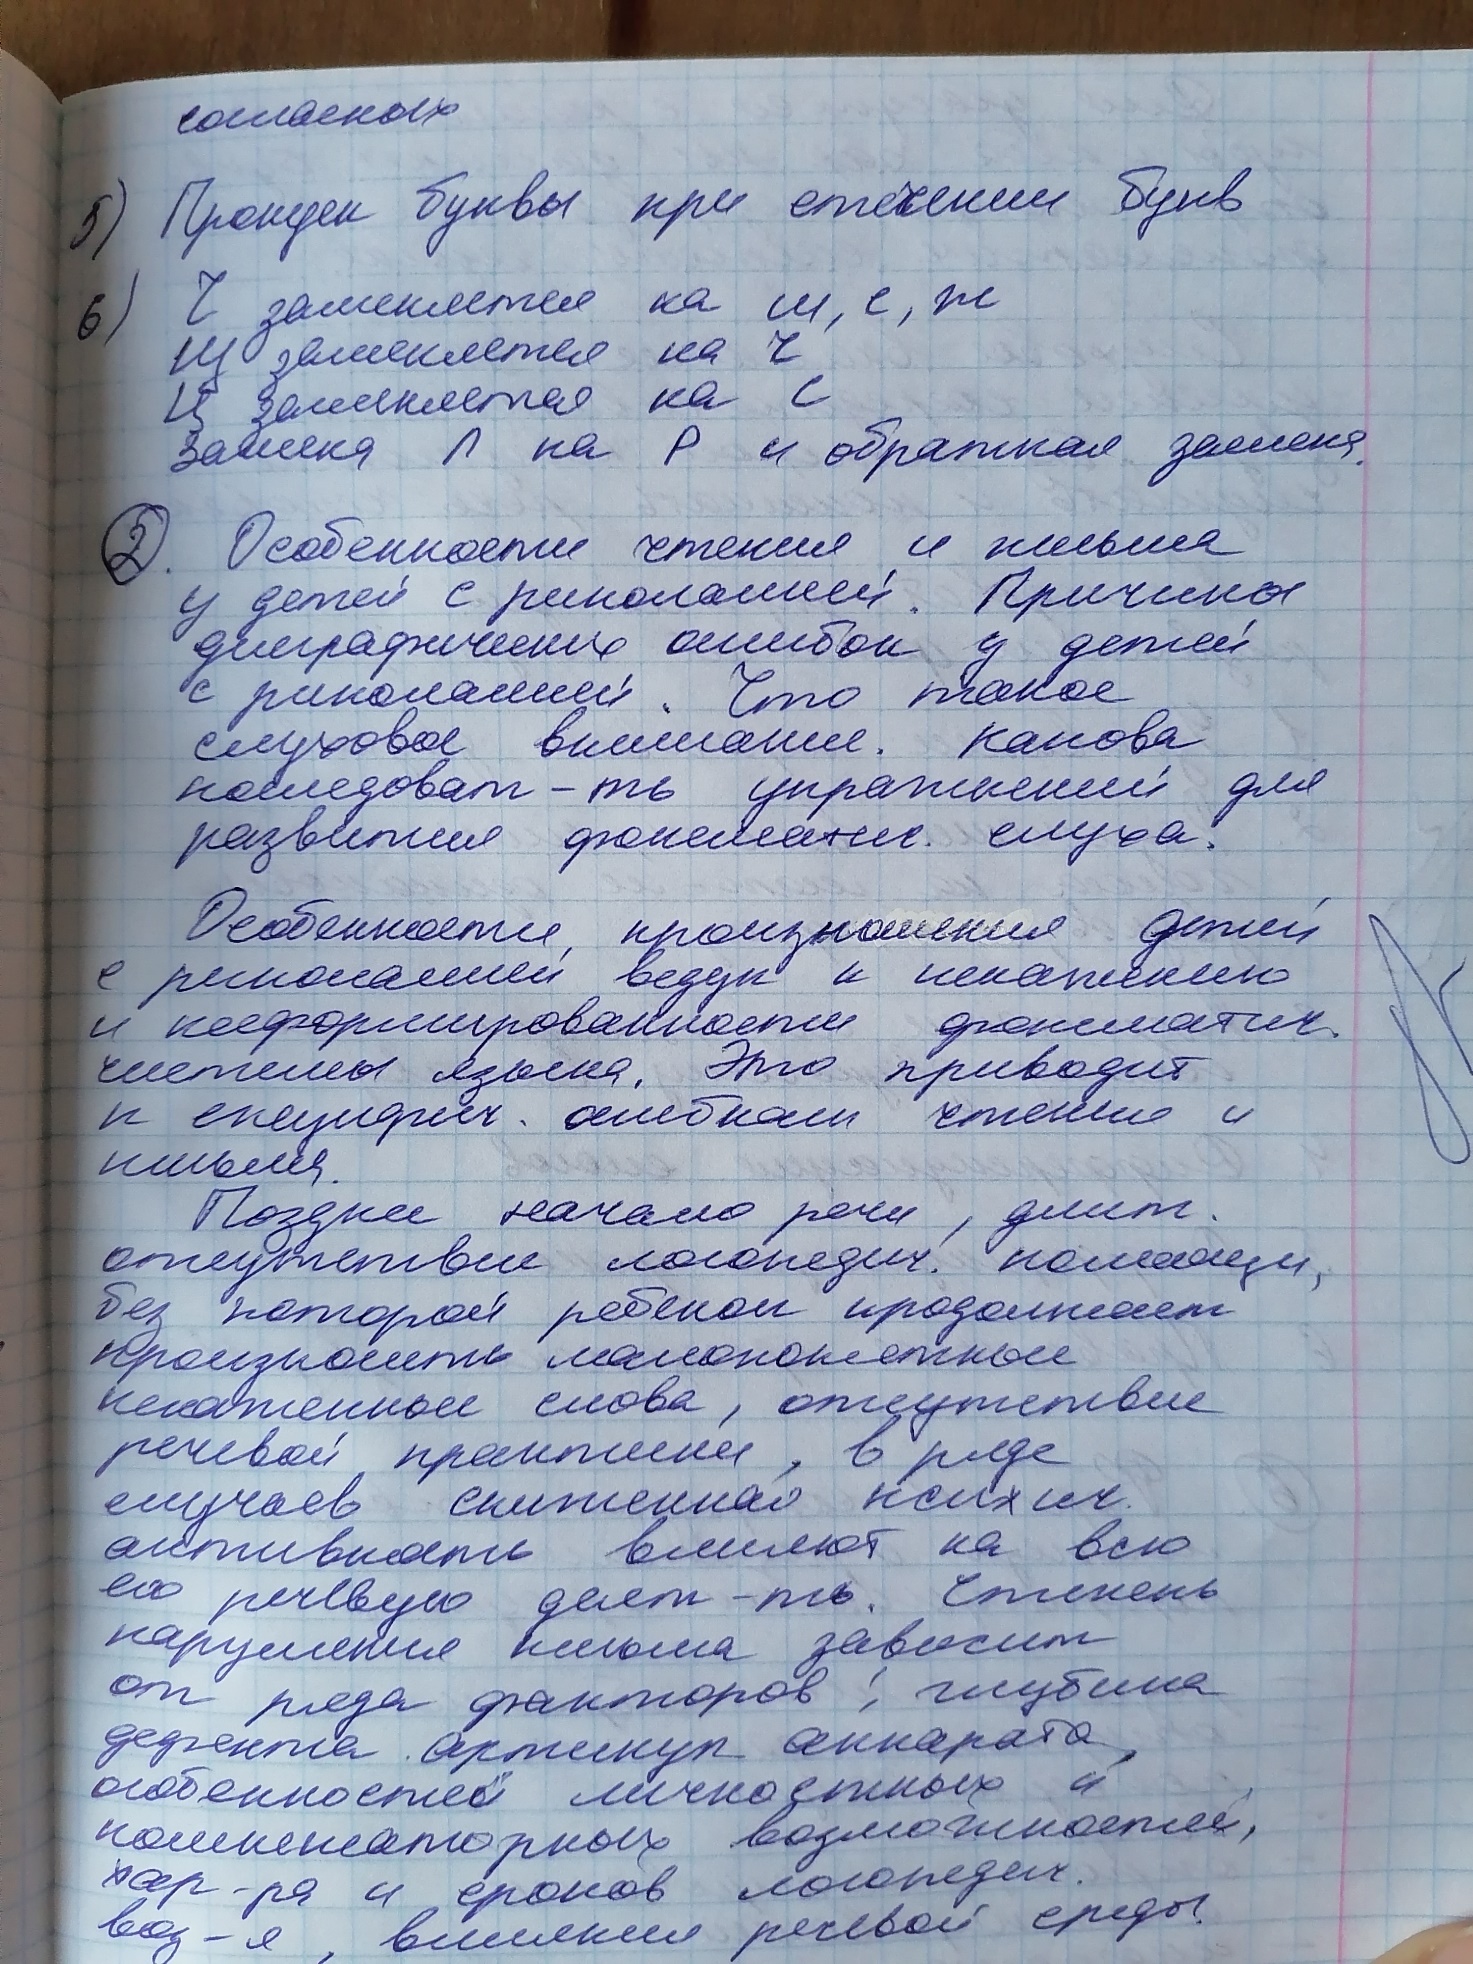 согласных
5) Пропуск буквы при стечении букв
6) Ч заменяется на ш, с, ж
Щ заменяется на Ч
Ц заменяется на С
Замена Л на Р и обратная замена.
2. Особенности чтения и письма
у детей с ринолалией. Причины
дисграфических ошибок у детей
с ринолалией. Что такое
слуховое внимание. Какова
последоват-ть упражнений для
развития фонематич. слуха.
Особенности произношения детей
с ринолалией ведук к искажению
и несформированности фонематич.
системы языка. Это приводит
к специфич. ошибкам чтения и
письма.
Позднее начало речи, длит.
отсутствие логопедич. помощи,
без которой ребенок продолжает
произносить малопонятные
искаженные слова, отсутствие
речевой практики, в ряде
случаев сниженная психич.
активность влияют на всю
его речевую деят-ть. Степень
нарушения письма зависит
от ряда факторов: глубина
дефекта артикул аппарата,
особенностей личностных и
компенсаторных возможностей,
хар-ра и сроков логопедич.
воз-я, влияния речевой среды.